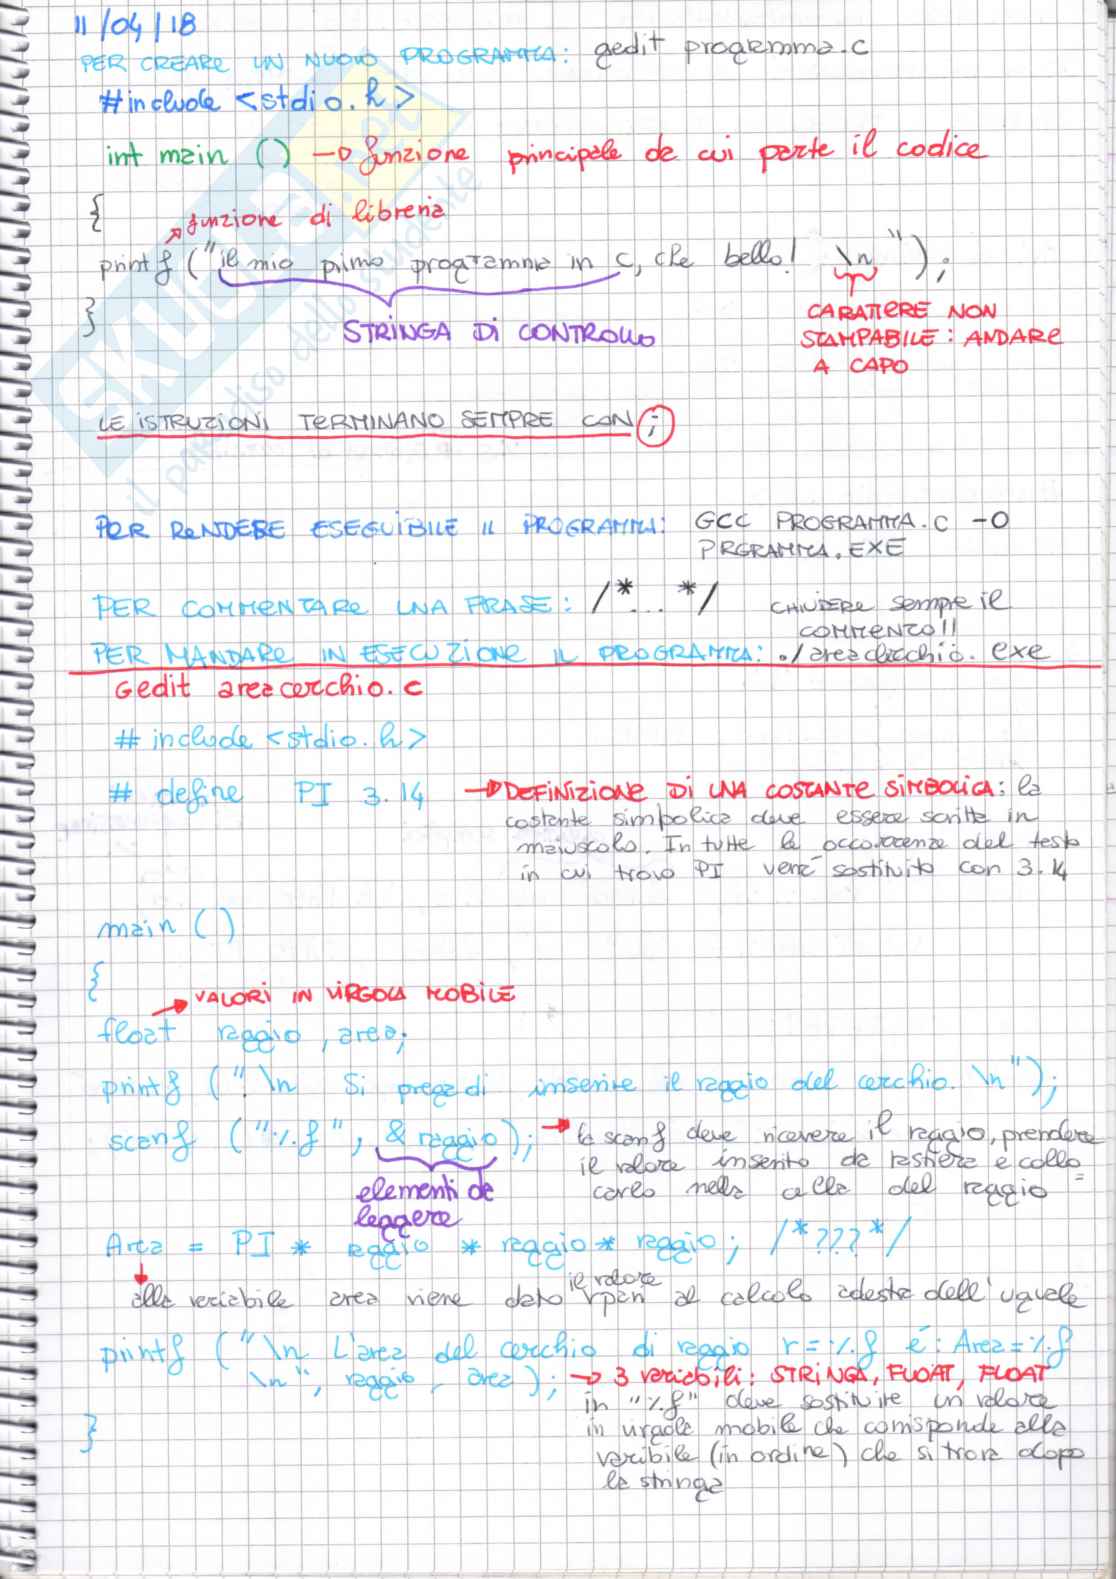 11/04/18
PER CREARE UN NUOVO PROGRAMMA: gedit programma.c
#include <stdio.h>
int main () → funzione principale da cui parte il codice
{
funzione di libreria
printf ("il mio primo programma in C, che bello! \n");
}
STRINGA DI CONTROLLO
CARATTERE NON
STAMPABILE: ANDARE
A CAPO
LE ISTRUZIONI TERMINANO SEMPRE CON ;
PER RENDERE ESEGUIBILE IL PROGRAMMA: GCC PROGRAMMA.C -O
PRGRAMMA.EXE
PER COMMENTARE UNA FRASE: /*... */ CHIUDERE sempre il
COMMENTO!!
PER MANDARE IN ESECUZIONE IL PROGRAMMA: ./areacerchio.exe
Gedit areacerchio.c
# include <stdio.h>
# define PI 3.14 → DEFINIZIONE DI UNA COSTANTE SIMBOLICA: la
costante simbolica deve essere scritta in
maiuscolo. In tutte le occorrenze del testo
in cui trovo PI verrà sostituito con 3.14
main ()
{
→ VALORI IN VIRGOLA MOBILE
float raggio, area;
printf (" \n Si prega di inserire il raggio del cerchio. \n");
scanf ("%f", & raggio); → la scanf deve ricevere il raggio, prendere
il valore inserito da tastiera e collo=
carlo nella cella del raggio
elementi da
leggere
Area = PI * raggio * raggio * raggio; /*???*/
il valore
alla variabile area viene dato pari al calcolo a destra dell'uguale
printf ("\n L'area del cerchio di raggio r=%f è: Area=%f
\n", raggio, area); → 3 variabili: STRINGA, FLOAT, FLOAT
in "%f" deve sostituire un valore
in virgola mobile che corrisponde alla
varibile (in ordine) che si trova dopo
la stringa
}
SKUOLA.net
il paradiso dello studente